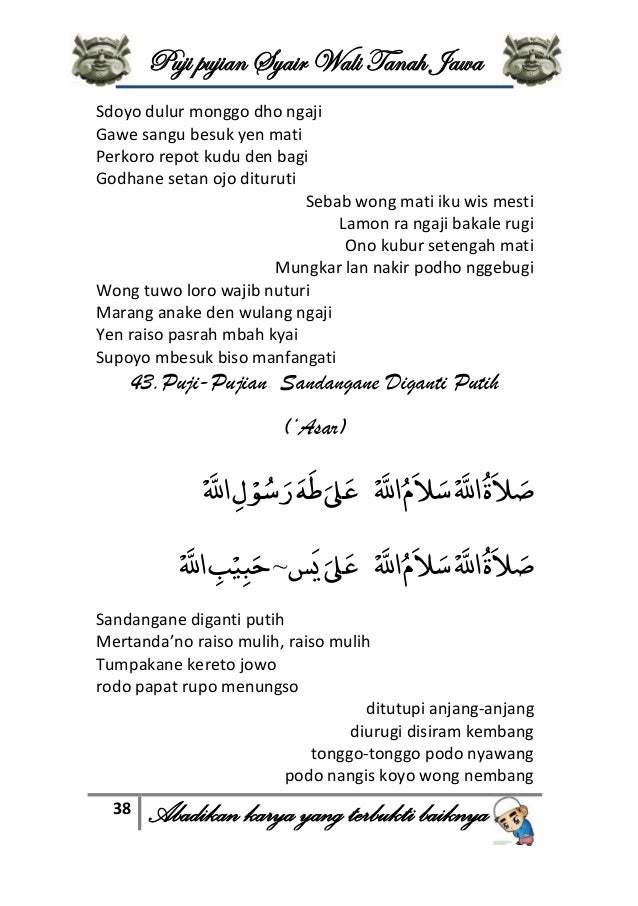 Puji pujian Syair Wali Tanah Jawa
Sdoyo dulur monggo dho ngaji
Gawe sangu besuk yen mati
Perkoro repot kudu den bagi
Godhane setan ojo dituruti
Sebab wong mati iku wis mesti
Lamon ra ngaji bakale rugi
Ono kubur setengah mati
Mungkar lan nakir podho nggebugi
Wong tuwo loro wajib nuturi
Marang anake den wulang ngaji
Yen raiso pasrah mbah kyai
Supoyo mbesuk biso manfangati
43. Puji-Pujian Sandangane Diganti Putih
('Asar)
صَلاَةُاللهْ سَلاَمُ اللهْ عَلىَ طَهَ رَسُوْلِ اللهْ
صَلاَةُاللهْ سَلاَمُ اللهْ عَلىَ يَس~ حَبِيْبِ اللهْ
Sandangane diganti putih
Mertanda’no raiso mulih, raiso mulih
Tumpakane kereto jowo
rodo papat rupo menungso
ditutupi anjang-anjang
diurugi disiram kembang
tonggo-tonggo podo nyawang
podo nangis koyo wong nembang
38 Abadikan karya yang terbukti baiknya